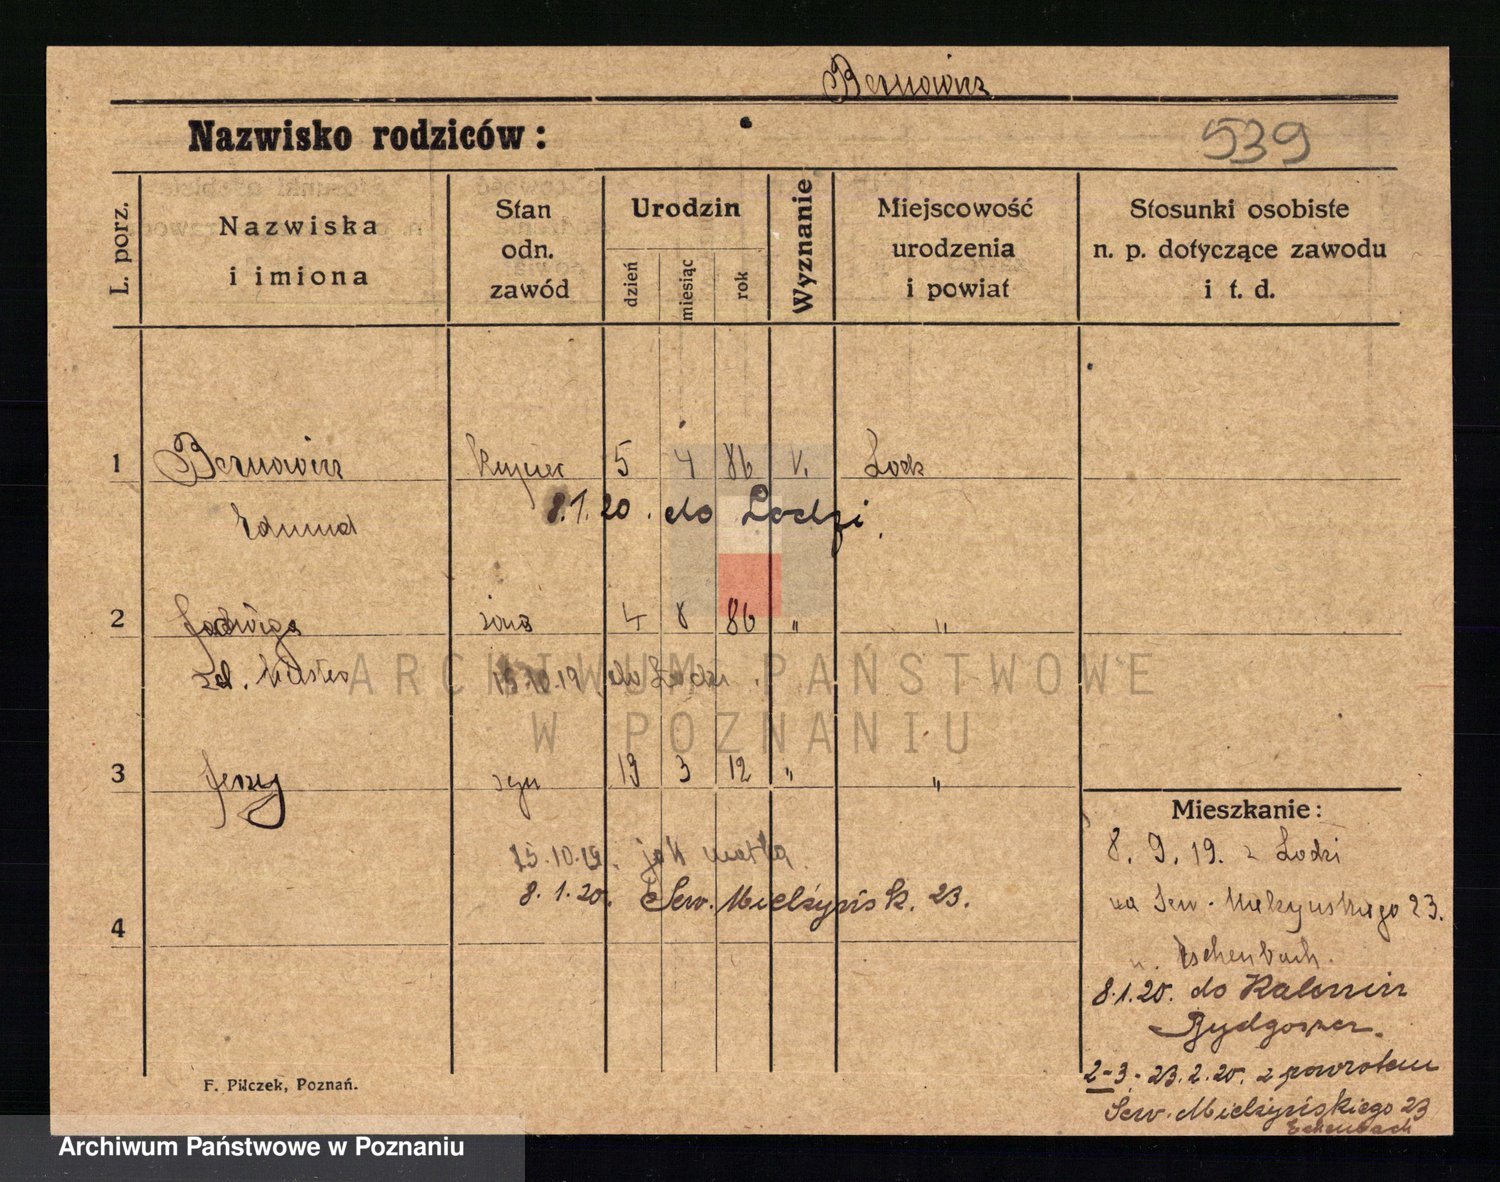 Bernowicz
Nazwisko rodziców:
539
L. porz.
Nazwiska
i imiona
Stan
odn.
zawód
Urodzin
dzień
miesiąc
rok
Wyznanie
Miejscowość
urodzenia
i powiat
Stosunki osobiste
n. p. dotyczące zawodu
i t. d.
1 Bernowicz kupiec 5 4 86 Lodz
Edmund 8.1.20. do Lodzi.
2 Jadwiga żona 4 8 86 " "
zd. 15.10.19 do Lodzi.
ARCHIWUM PAŃSTWOWE
W POZNANIU
3 Jerzy syn 19 3 12 " "
15.10.19. jak matka.
8.1.20. Sew. Mielżyńsk. 23.
4
Mieszkanie:
8. 9. 19. z Lodzi
na Sew. Mielzynskiego 23.
u. Eschenbach.
8.1.20. do
2-3. 23.2.20. z powrotem
Sew. Mielżyńskiego 23
Echenbach
F. Pilczek, Poznań.
Archiwum Państwowe w Poznaniu